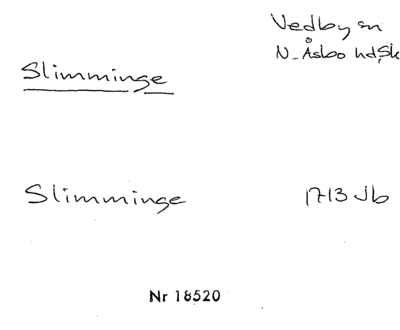 Vedby sn
N. Åsbo hd, Sk
Slimminge
Slimminge 1713 Jb
Nr 18520